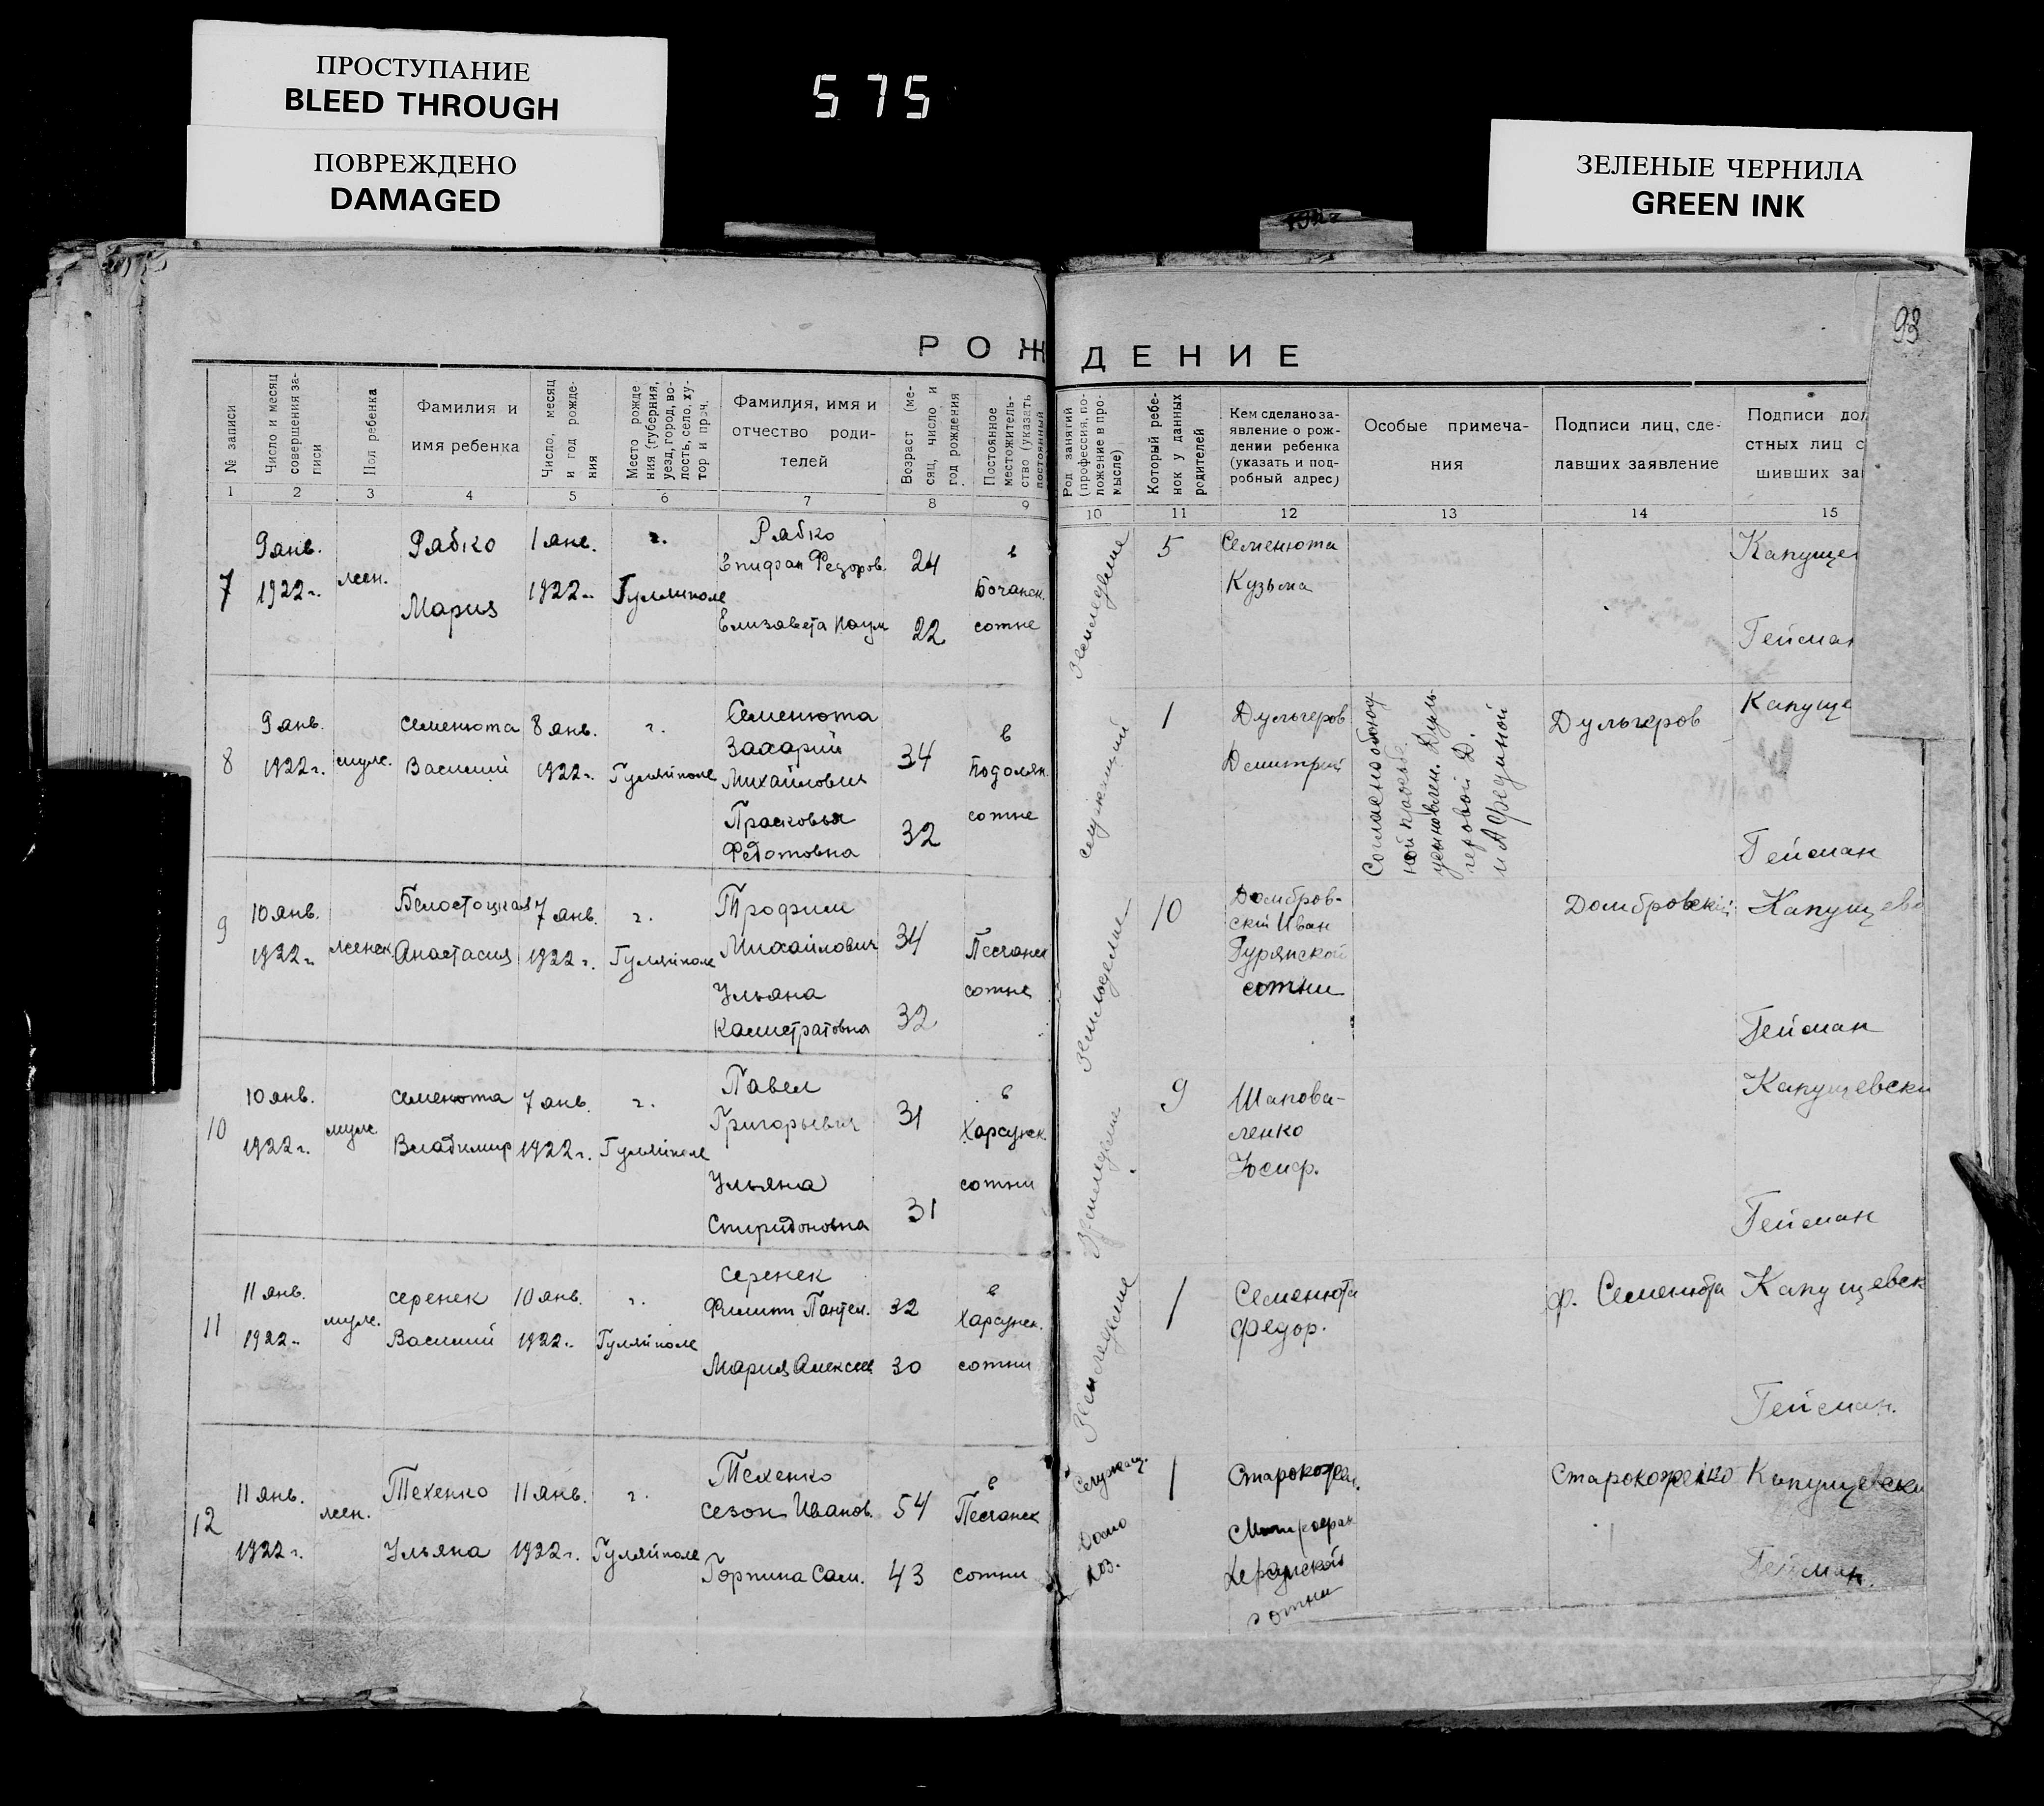 ПРОСТУПАНИЕ
BLEED THROUGH
ПОВРЕЖДЕНО
DAMAGED
575
ЗЕЛЕНЫЕ ЧЕРНИЛА
GREEN INK
93
РОЖДЕНИЕ
№ записи
Число и месяц
совершения за-
писи
Пол ребенка
Фамилия и
имя ребенка
Число, месяц
и год рожде-
ния
Место рожде
ния (губерния,
уезд, город, во-
лость, село, ху-
тор и проч.
Фамилия, имя и
отчество роди-
телей
Возраст (ме-
сяц, число и
год рождения
Постоянное
местожитель-
ство (указать
постоянный
Род занятий
(профессия, по-
ложение в про-
мысле)
Который ребе-
нок у данных
родителей
Кем сделано за-
явление о рож-
дении ребенка
(указать и под-
робный адрес)
Особые примеча-
ния
Подписи лиц, сде-
лавших заявление
Подписи дол
стных лиц с
шивших за
1 2 3 4 5 6 7 8 9 10 11 12 13 14 15
7
9 янв.
1922 г.
жен.
Рябко
Мария
1 янв.
1922 г.
г.
Гуляйполе
Рябко
Епифан Федоров.
Елизавета Наум
24
22
в
Бочанск.
сотне
Земледелие
5
Семенюта
Кузьма
Капущев
Гейсман
8
9 янв.
1922 г.
муж.
Семенюта
Василий
8 янв.
1922 г.
г.
Гуляйполе
Семенюта
Захарий
Михайлович
Прасковья
Федотовна
34
32
в
Подолян.
сотне
служащий
1
Дульгеров
Димитрий
Согласно обоюд
ной просьбе
усыновлен. Дуль
геровой Д.
и Афединой
Дульгеров
Капуще
Гейсман
9
10 янв.
1922 г.
женск.
Белостоцкая
Анастасия
7 янв.
1922 г.
г.
Гуляйполе
Трофим
Михайлович
Ульяна
Калистратовна
34
32
Песчанск
сотне
Земледелие
10
Домбров-
скій Иван
Гурянской
сотни
Домбровскій
Капущевс
Гейсман
10
10 янв.
1922 г.
муж
Семенюта
Владимир
7 янв.
1922 г.
г.
Гуляйполе
Павел
Григорьевич
Ульяна
Спиридоновна
31
31
в
Херсунск.
сотни
Земледелие
9
Шапова-
ленко
Иосиф.
Капущевски
Гейсман
11
11 янв.
1922 г.
муж.
Серенек
Василий
10 янв.
1922 г.
г.
Гуляйполе
Серенек
Филипп Пантел.
Мария Алексее
32
30
в
Херсунск.
сотни
Земледелие
1
Семенюта
Федор.
Ф. Семенюта
Капущевск
Гейсман.
12
11 янв.
1922 г.
жен.
Техенко
Ульяна
11 янв.
1922 г.
г.
Гуляйполе
Техенко
Сезон Иванов.
Горпина Сам.
54
43
в
Песчанск
сотни
Служащ.
Домо
хоз.
1
Старокожен.
Митрофан
Херсунской
сотни
Старокоженко
Капущевски
Гейсман.